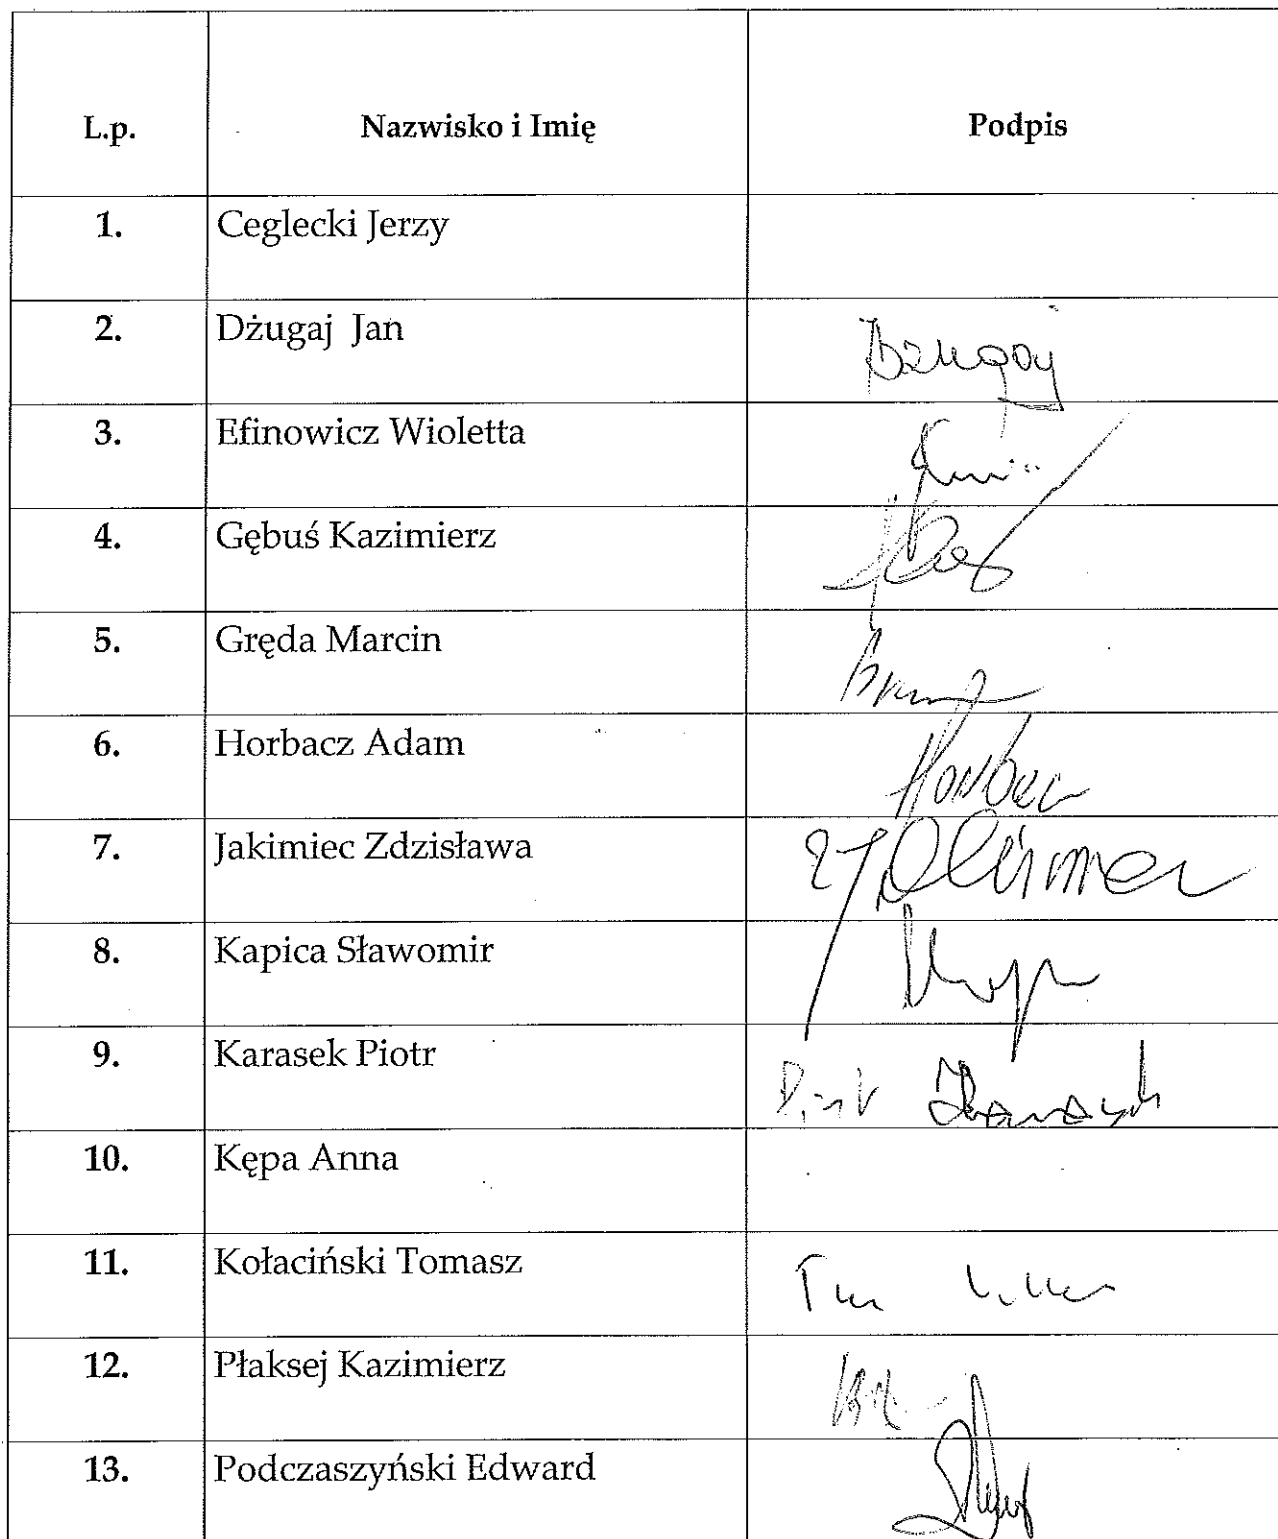 L.p. Nazwisko i Imię Podpis
1. Ceglecki Jerzy
2. Dżugaj Jan Dżugaj
3. Efinowicz Wioletta
4. Gębuś Kazimierz
5. Gręda Marcin
6. Horbacz Adam
7. Jakimiec Zdzisława
8. Kapica Sławomir
9. Karasek Piotr Piotr Karasek
10. Kępa Anna
11. Kołaciński Tomasz
12. Płaksej Kazimierz
13. Podczaszyński Edward